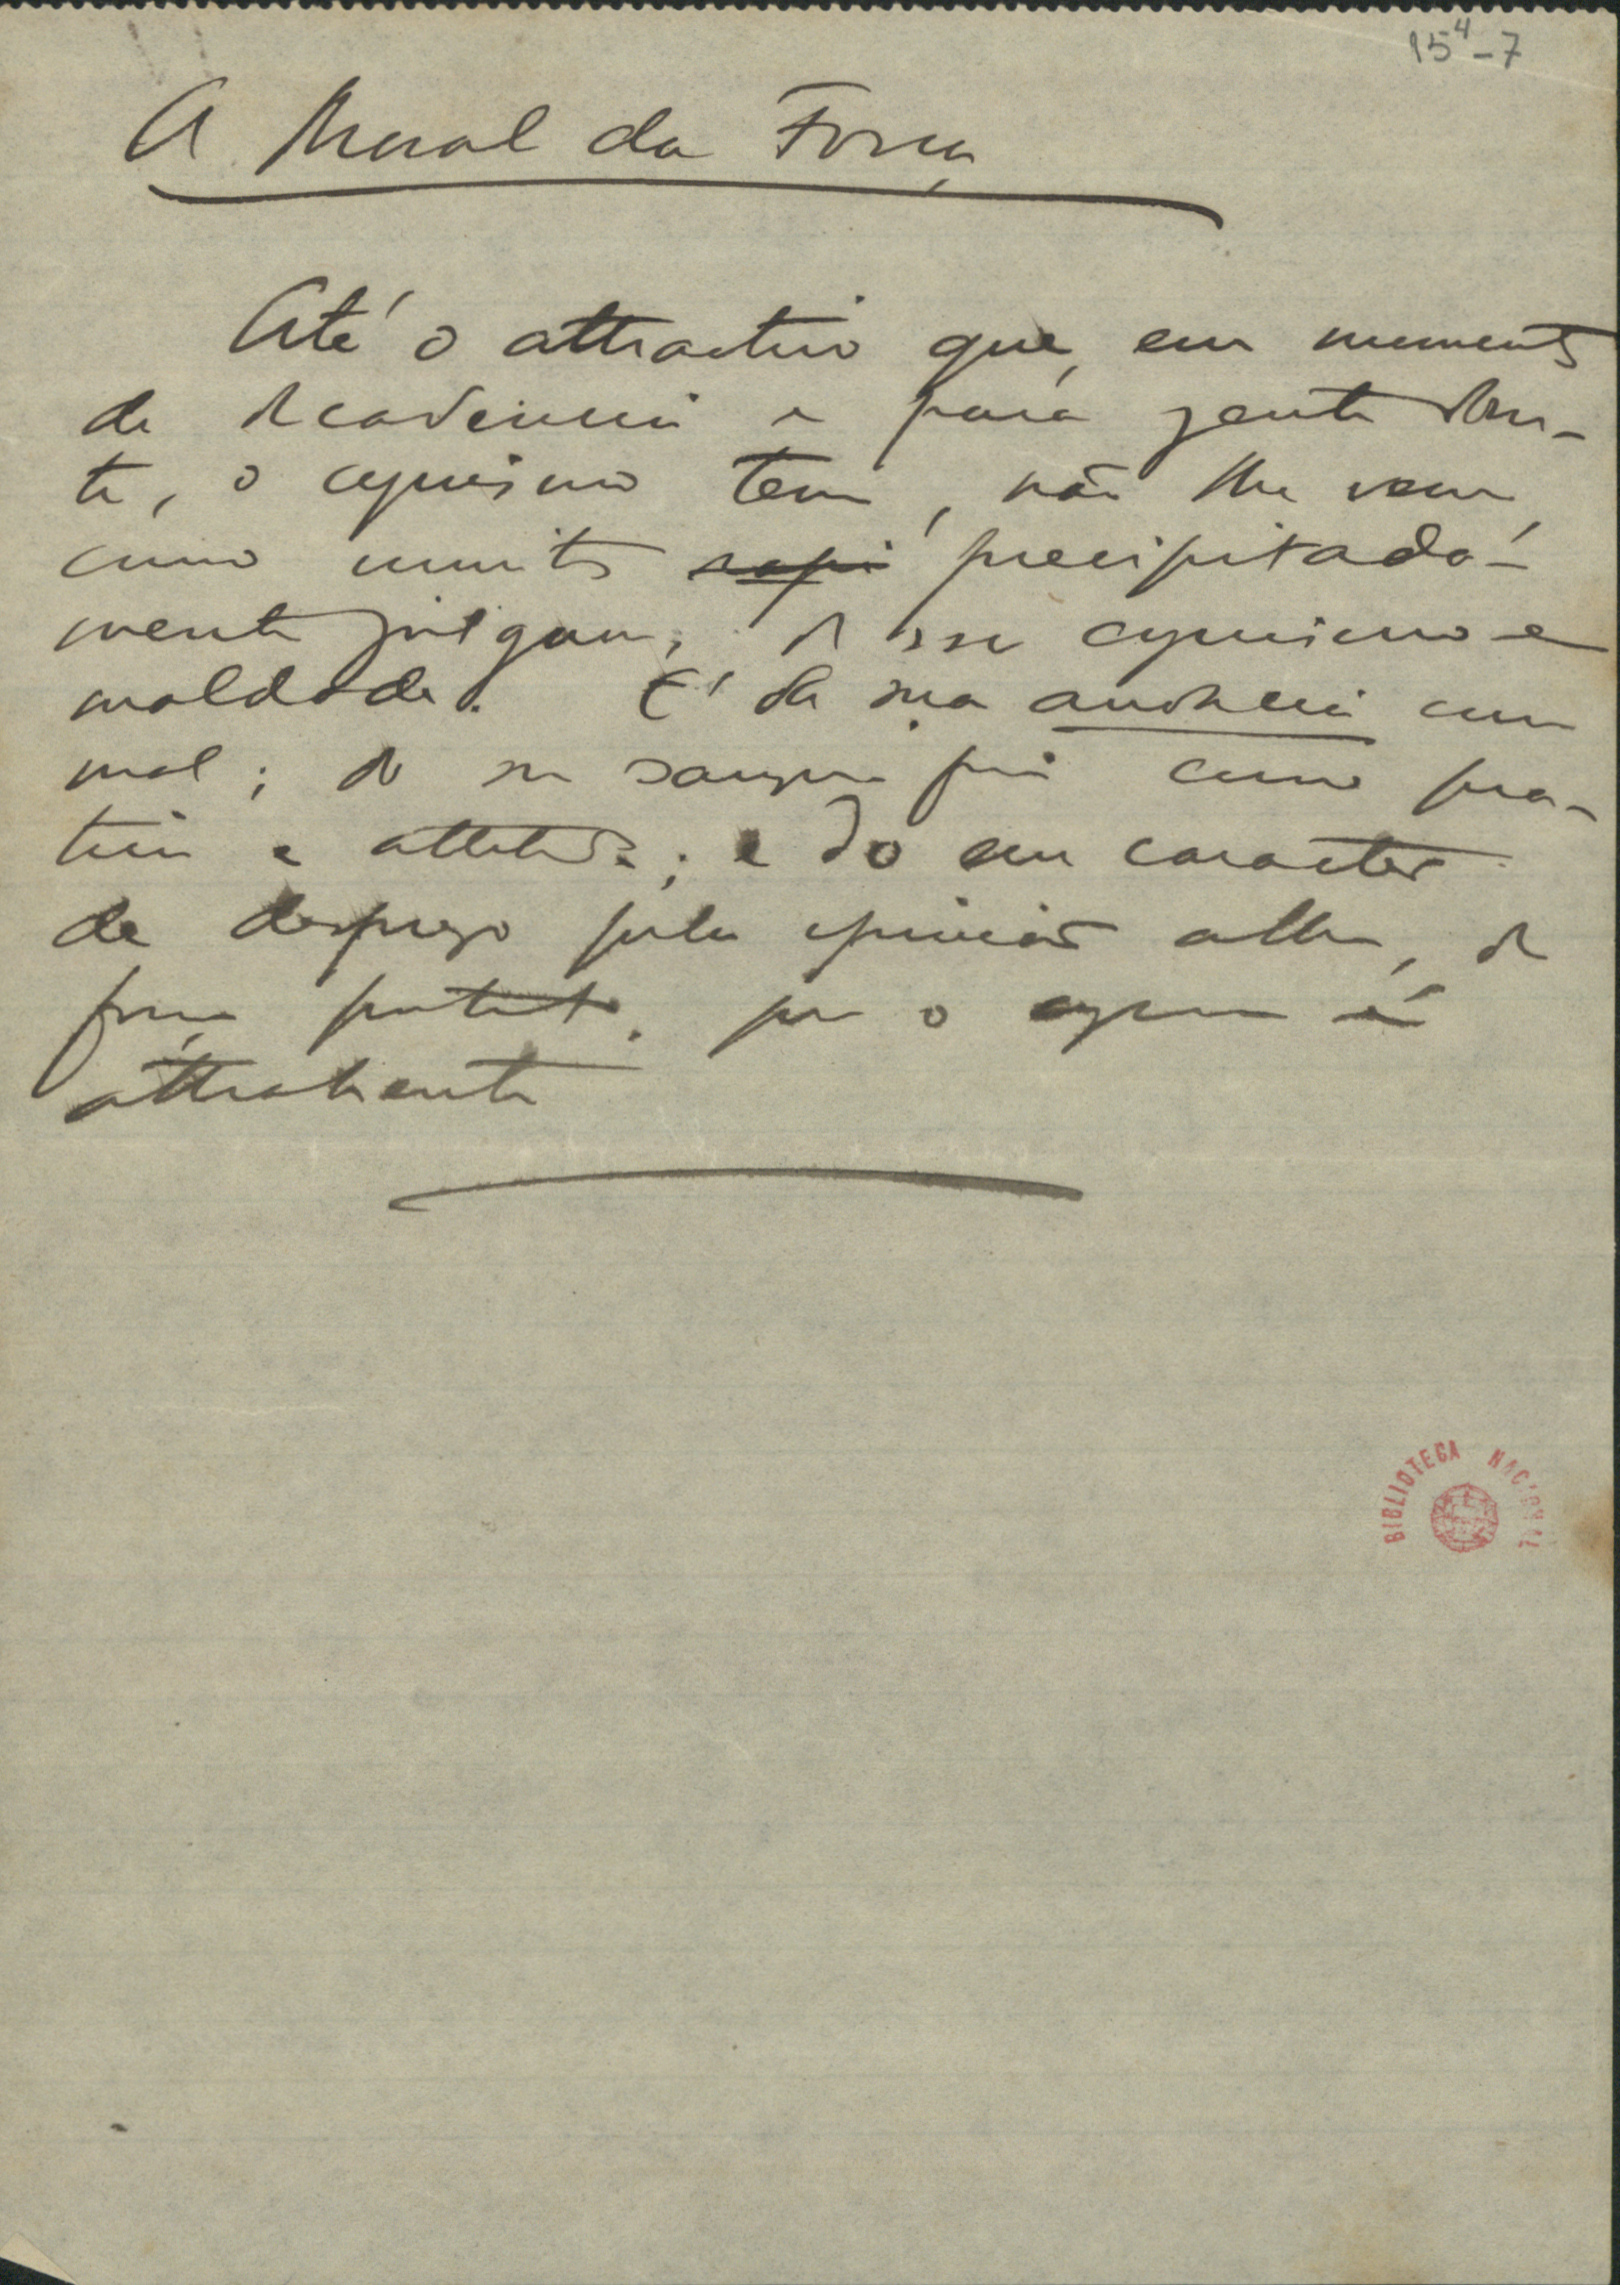 15⁴-7
A Moral da Força
Até o attractivo que, em momentos
de decadencia e para gente doen-
te, o cynismo tem, não lhe vem,
como muitos rapi precipitada-
mente julgam, de ser cynismo e
maldade. E' da sua audacia com
mal; do seu sangue frio como
e attitude; e do seu caracter
de desprezo pela opinião alheia, de
força portanto, que o cynismo é
attrahente
BIBLIOTECA NACIONAL